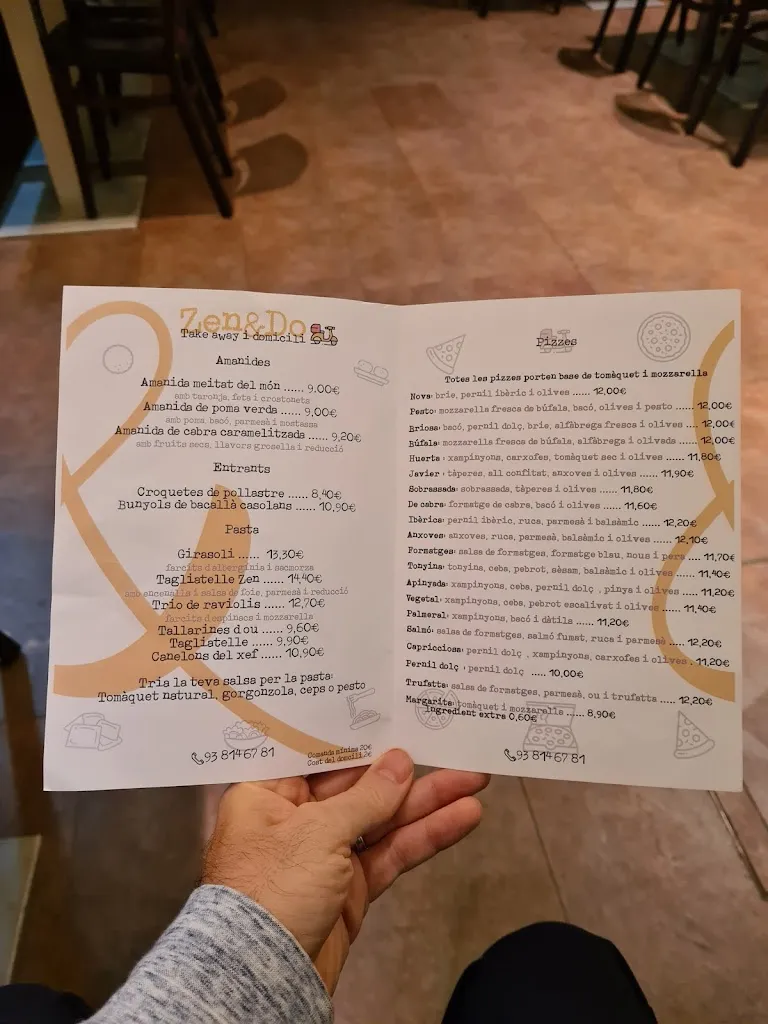 Zen&Do
Take away i domicili
Amanides
Amanida meitat del món ...... 9,00€
amb taronja, feta i crostonets
Amanida de poma verda ...... 9,00€
amb poma, bacó, parmesà i mostassa
Amanida de cabra caramelitzada ...... 9,20€
amb fruits secs, llavors grosella i reducció
Entrants
Croquetes de pollastre ...... 8,40€
Bunyols de bacallà casolans ...... 10,90€
Pasta
Girasoli ...... 13,30€
farcits d'alberginia i scamorza
Tagliatelle Zen ...... 14,40€
amb encenalls i salsa de foie, parmesà i reducció
Trio de raviolis ...... 12,70€
farcits d'espinacs i mozzarella
Tallarines d'ou ...... 9,60€
Tagliatelle ...... 9,90€
Canelons del xef ...... 10,90€
Tria la teva salsa per la pasta:
Tomàquet natural, gorgonzola, ceps o pesto
93 814 67 81
Comanda mínima 20€
Cost del domicili 2€
Pizzes
Totes les pizzes porten base de tomàquet i mozzarella
Nova: brie, pernil ibèric i olives ...... 12,00€
Pesto: mozzarella fresca de búfala, bacó, olives i pesto ...... 12,00€
Briosa: bacó, pernil dolç, brie, alfàbrega fresca i olives ...... 12,00€
Búfala: mozzarella fresca de búfala, alfàbrega i olivada ...... 12,00€
Huerta: xampinyons, carxofes, tomàquet sec i olives ...... 11,80€
Javier: tàperes, all confitat, anxoves i olives ...... 11,90€
Sobrassada: sobrassada, tàperes i olives ...... 11,80€
De cabra: formatge de cabra, bacó i olives ...... 11,60€
Ibèrica: pernil ibèric, ruca, parmesà i balsàmic ...... 12,20€
Anxoves: anxoves, ruca, parmesà, balsàmic i olives ...... 12,10€
Formatges: salsa de formatges, formatge blau, nous i pera .... 11,70€
Tonyina: tonyina, ceba, pebrot, sèsam, balsàmic i olives ...... 11,40€
Apinyada: xampinyons, ceba, pernil dolç , pinya i olives ...... 11,20€
Vegetal: xampinyons, ceba, pebrot escalivat i olives ...... 11,40€
Palmeral: xampinyons, bacó i dàtils ...... 11,20€
Salmó: salsa de formatges, salmó fumat, ruca i parmesà ...... 12,20€
Capricciosa: pernil dolç , xampinyons, carxofes i olives . 11,20€
Pernil dolç : pernil dolç ...... 10,00€
Trufatta: salsa de formatges, parmesà, ou i trufatta ...... 12,20€
Margarita: tomàquet i mozzarella ...... 8,90€
Ingredient extra 0,60€
93 814 67 81